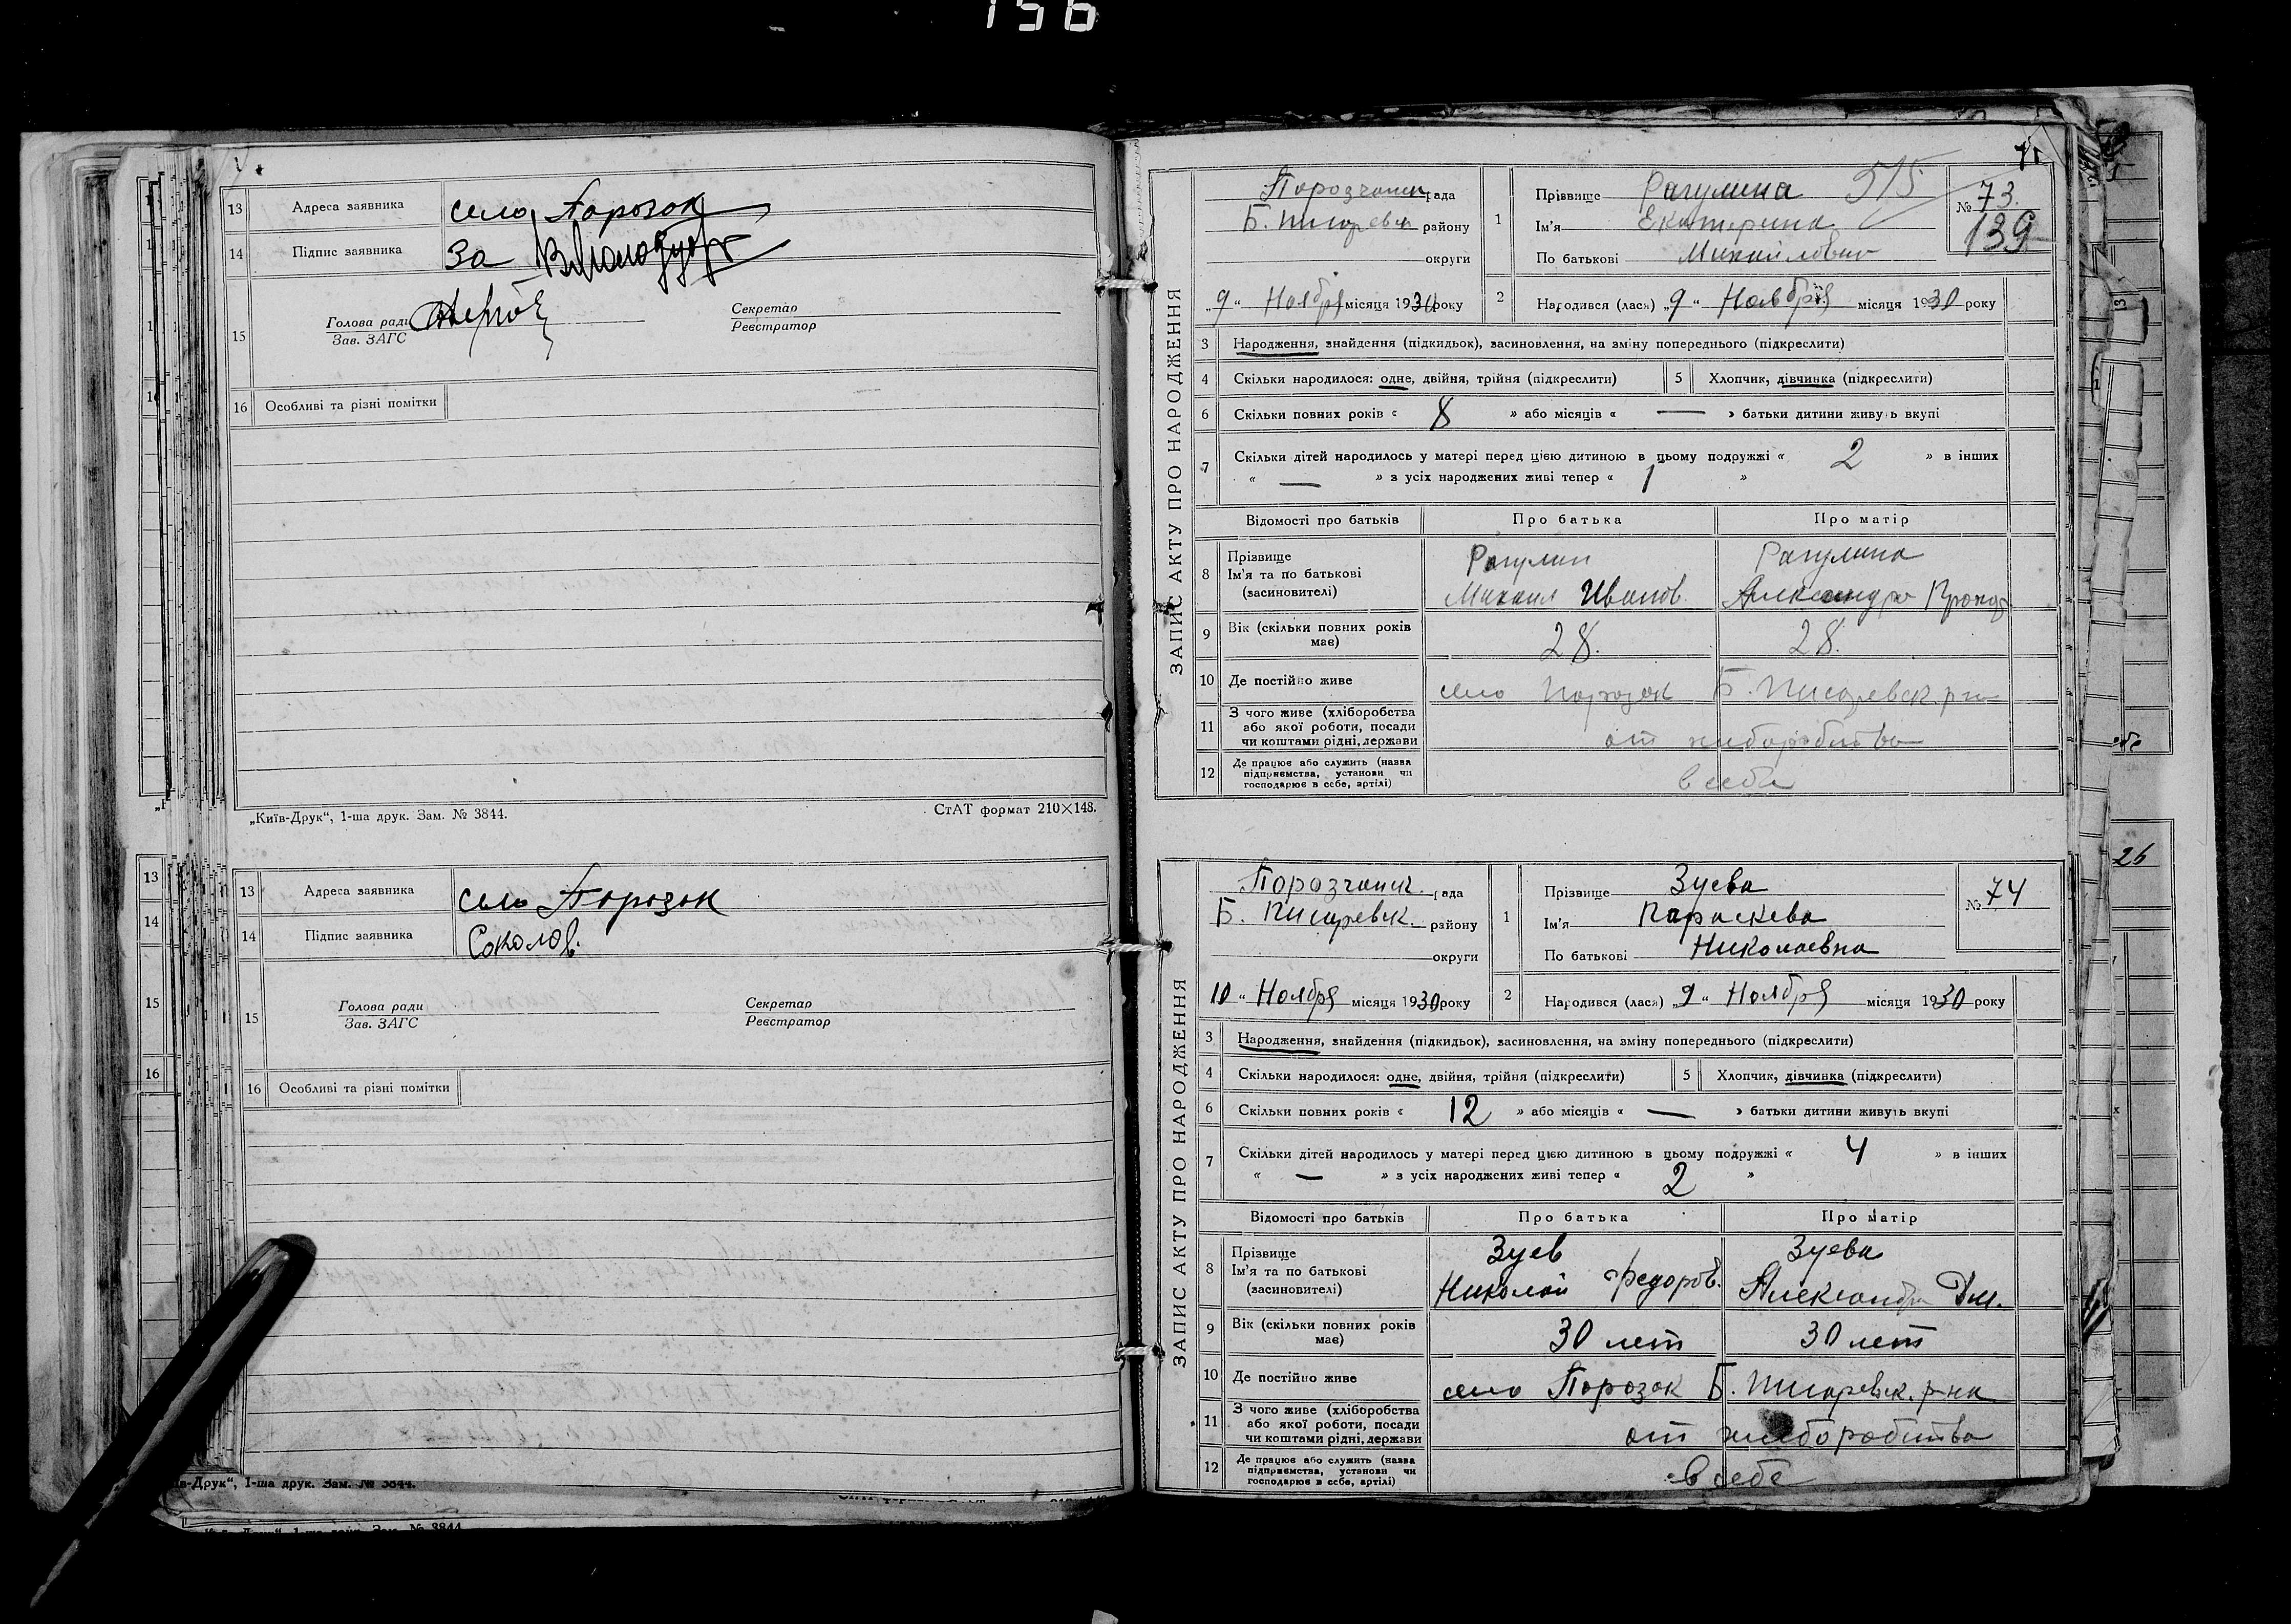 156
13 Адреса заявника село Порозок
14 Підпис заявника За
15 Голова ради Секретар
Зав. ЗАГС Реєстратор
16 Особливі та різні помітки
„Київ-Друк“, 1-ша друк. Зам. № 3844. СтАТ формат 210×148.
13 Адреса заявника село Порозок
14 Підпис заявника Соколов.
15 Голова ради Секретар
Зав. ЗАГС Реєстратор
16 Особливі та різні помітки
в-Друк“, 1-ша друк. Зам. № 3844.
71
ЗАПИС АКТУ ПРО НАРОДЖЕННЯ
Порозчанск рада
Б. Писаревск району
округи
„9“ Ноября місяця 1930 року
1 Прізвище Рагулина 515
Ім'я Екатерина
По батькові Михайловна
№ 73.
139
2 Народився (лася) „9“ Ноября місяця 1930 року
3 Народження, знайдення (підкидьок), засиновлення, на зміну попереднього (підкреслити)
4 Скільки народилося: одне, двійня, трійня (підкреслити) 5 Хлопчик, дівчинка (підкреслити)
6 Скільки повних років « 8 » або місяців « — » батьки дитини живуть вкупі
7 Скільки дітей народилось у матері перед цією дитиною в цьому подружжі « 2 » в інших
« — » з усіх народжених живі тепер « 1 »
Відомості про батьків Про батька Про матір
8 Прізвище Рагулин Рагулина
Ім'я та по батькові
(засиновителі) Михаил Иванов. Александра
9 Вік (скільки повних років має) 28. 28.
10 Де постійно живе село Порозок Б. Писаревск. р-на
11 З чого живе (хліборобства
або якої роботи, посади
чи коштами рідні, держави от хлиборобства
12 Де працює або служить (назва
підприємства, установи чи
господарює в себе, артілі) в себе
ЗАПИС АКТУ ПРО НАРОДЖЕННЯ
Порозчанск. рада
Б. Писаревск. району
округи
10 “ Ноября місяця 1930 року
1 Прізвище Зуева
Ім'я Параскева
По батькові Николаевна
№ 74
2 Народився (лася) „9“ Ноября місяця 1930 року
3 Народження, знайдення (підкидьок), засиновлення, на зміну попереднього (підкреслити)
4 Скільки народилося: одне, двійня, трійня (підкреслити) 5 Хлопчик, дівчинка (підкреслити)
6 Скільки повних років « 12 » або місяців « — » батьки дитини живуть вкупі
7 Скільки дітей народилось у матері перед цією дитиною в цьому подружжі « 4 » в інших
« — » з усіх народжених живі тепер « 2 »
Відомості про батьків Про батька Про матір
8 Прізвище Зуев Зуева
Ім'я та по батькові
(засиновителі) Николай Федоров. Александра Дм.
9 Вік (скільки повних років має) 30 лет 30 лет
10 Де постійно живе село Порозок Б. Писаревск. р-на
11 З чого живе (хліборобства
або якої роботи, посади
чи коштами рідні, держави от хлиборобства
12 Де працює або служить (назва
підприємства, установи чи
господарює в себе, артілі) в себе
26